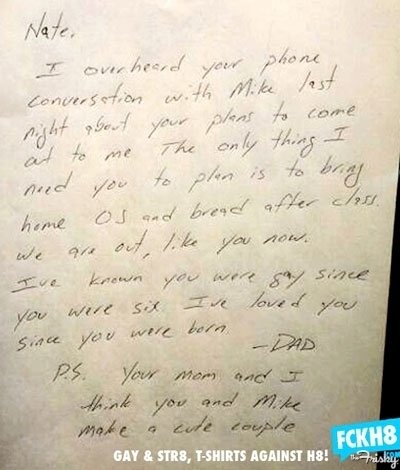 Nate,
I overheard your phone
conversation with Mike last
night about your plans to come
out to me The only thing I
need you to plan is to bring
home OJ and bread after class.
we are out, like you now.
I've known you were gay since
you were six I've loved you
since you were born
-DAD
P.S. Your mom and I
think you and Mike
make a cute couple
GAY & STR8, T-SHIRTS AGAINST H8!
FCKH8
.COM
the Frisky